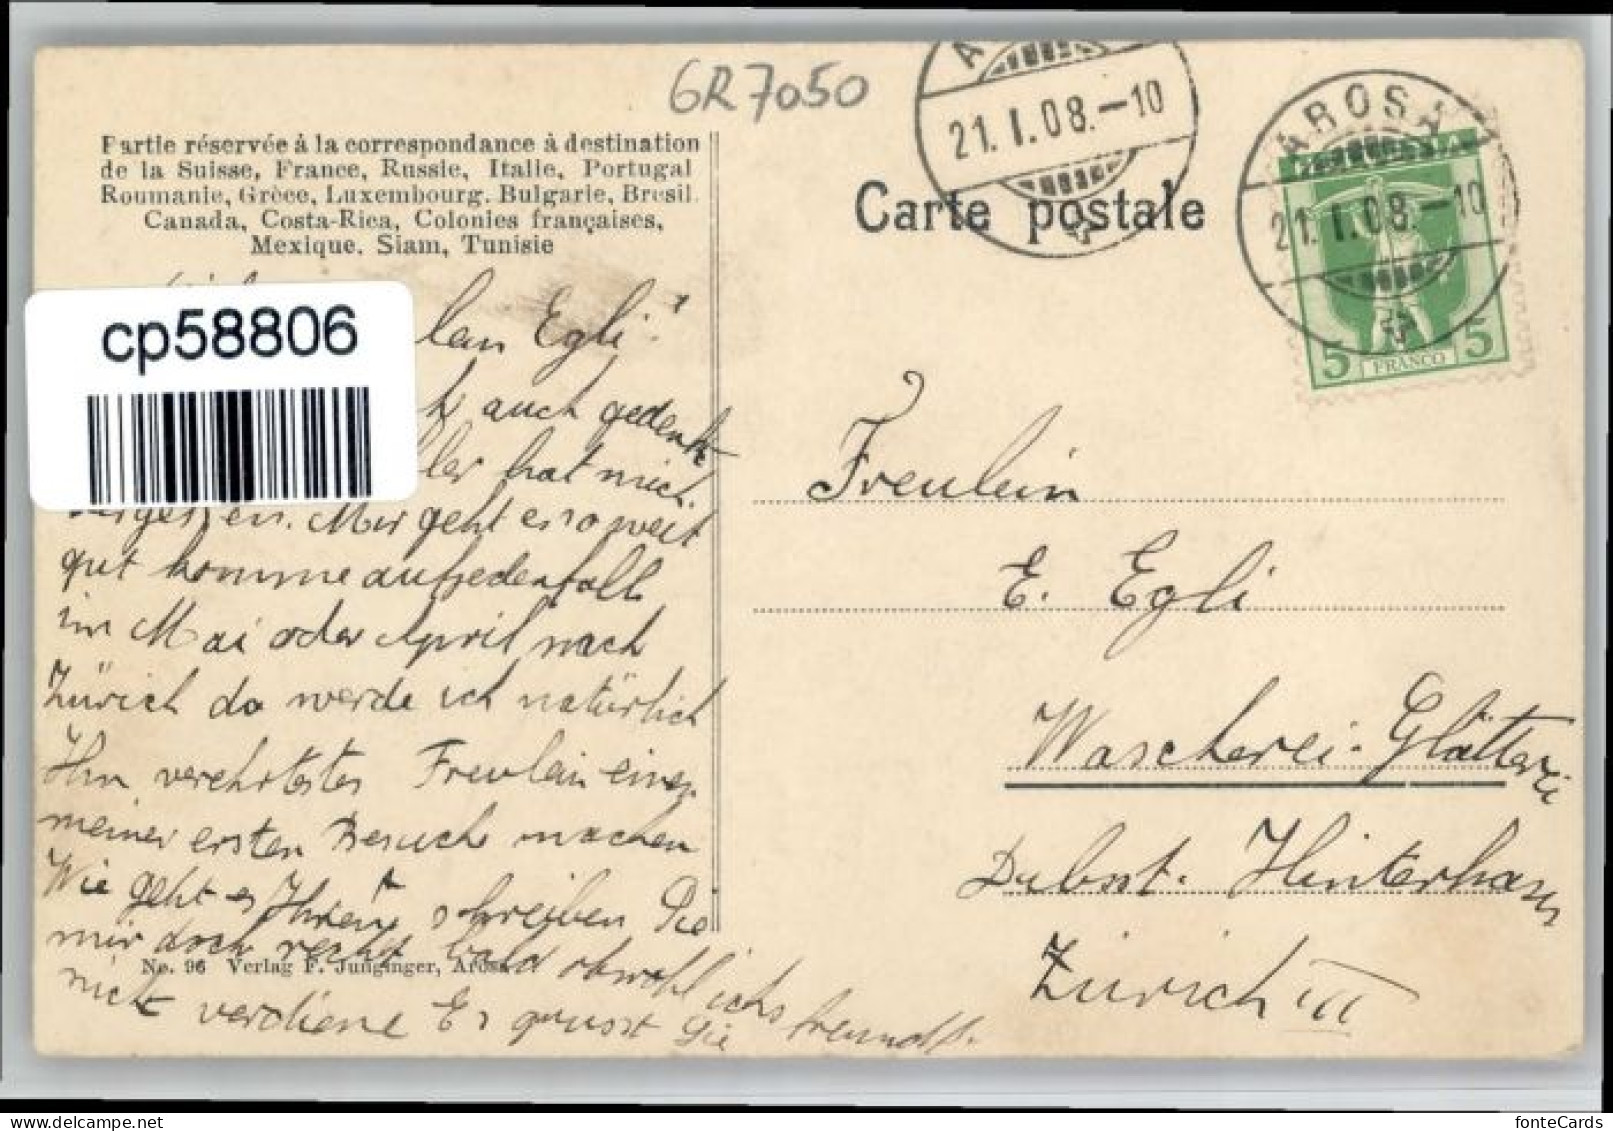 GR7050
Partie réservée à la correspondance à destination
de la Suisse, France, Russie, Italie, Portugal
Roumanie, Grèce, Luxembourg, Bulgarie, Brésil
Canada, Costa-Rica, Colonies françaises,
Mexique, Siam, Tunisie
Carte postale
21.I.08.-10
AROSA
21.I.08.-10
5 FRANCO 5
cp58806
Egli!
auch gedenkt
hat mich
vergessen. Mir geht es so weit
gut komme auf jedenfall
im Mai oder April nach
Zürich da werde ich natürlich
Ihn verehrtestes Freulein einen
meiner ersten Besuche machen
Wie geht es Ihnen schreiben Sie
mir doch recht bald obwohl ichs
nicht verdiene Es grüsst Sie freundl.
No. 96 Verlag F. Junginger, Arosa
Freulein
E. Egli
Wascherei-Glätterei
Hinterhaus
Zürich III
fonteCards